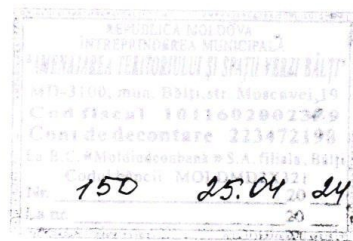 REPUBLICA MOLDOVA
ÎNTREPRINDEREA MUNICIPALĂ
"AMENAJAREA TERITORIULUI ŞI SPAŢII VERZI BĂLŢI"
MD-3100, mun. Bălţi, str. Moscovei, 19
Cod fiscal
Cont de decontare
B.C. «Moldindconbank» S.A. filiala Bălţi
Codul băncii
Nr. 150 25.04 2024
La nr. 20